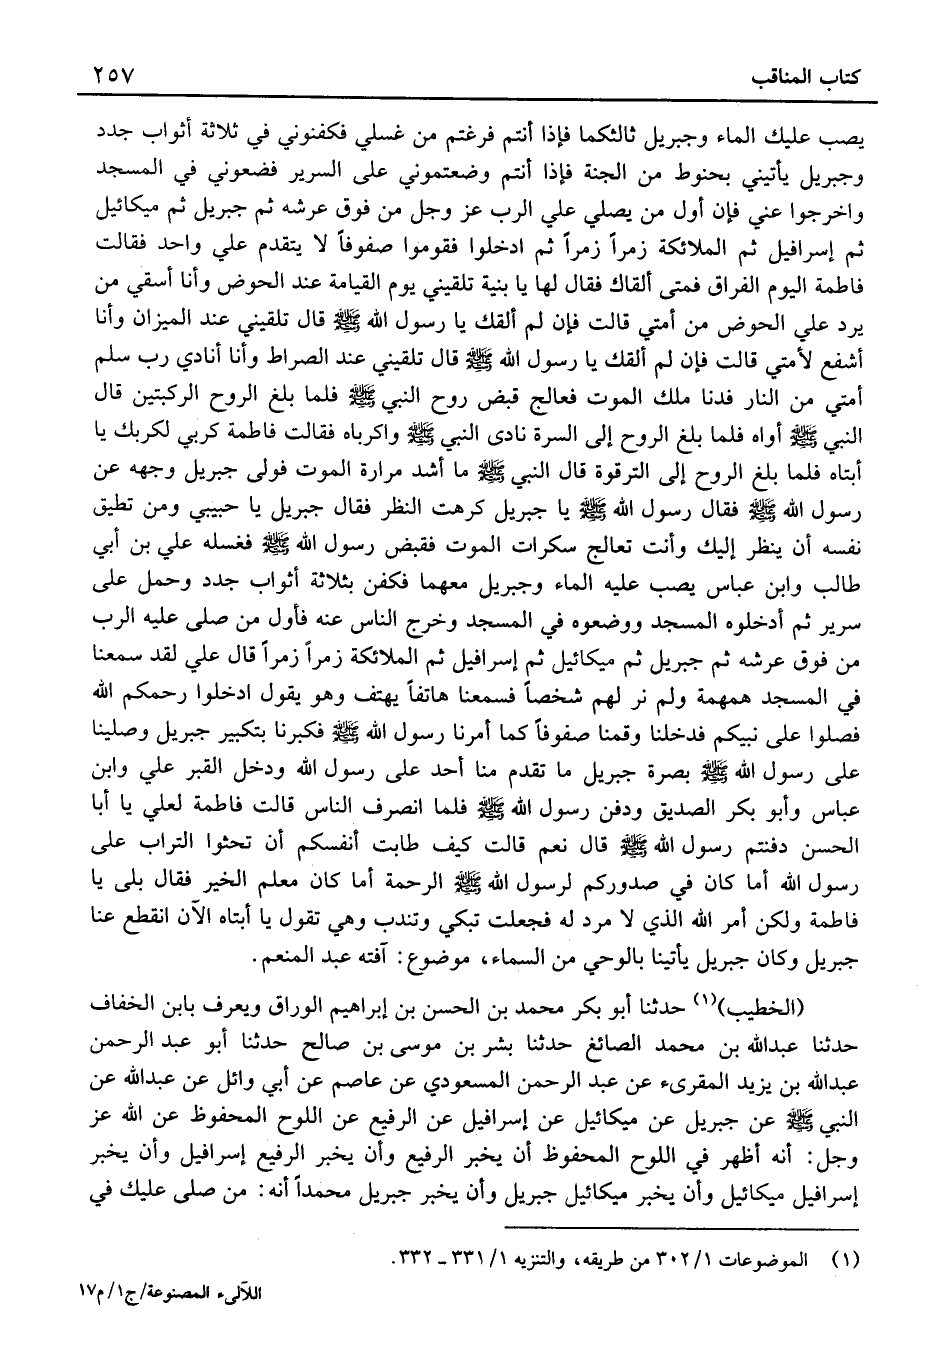 كتاب المناقب ٢٥٧
يصب عليك الماء وجبريل ثالثكما فإذا أنتم فرغتم من غسلي فكفنوني في ثلاثة أثواب جدد
وجبريل يأتيني بحنوط من الجنة فإذا أنتم وضعتموني على السرير فضعوني في المسجد
واخرجوا عني فإن أول من يصلي علي الرب عز وجل من فوق عرشه ثم جبريل ثم ميكائيل
ثم إسرافيل ثم الملائكة زمراً زمراً ثم ادخلوا فقوموا صفوفاً لا يتقدم علي واحد فقالت
فاطمة اليوم الفراق فمتى ألقاك فقال لها يا بنية تلقيني يوم القيامة عند الحوض وأنا أسقي من
يرد علي الحوض من أمتي قالت فإن لم ألقك يا رسول الله ﷺ قال تلقيني عند الميزان وأنا
أشفع لأمتي قالت فإن لم ألقك يا رسول الله ﷺ قال تلقيني عند الصراط وأنا أنادي رب سلم
أمتي من النار فدنا ملك الموت فعالج قبض روح النبي ﷺ فلما بلغ الروح الركبتين قال
النبي ﷺ أواه فلما بلغ الروح إلى السرة نادى النبي ﷺ واكرباه فقالت فاطمة كربي لكربك يا
أبتاه فلما بلغ الروح إلى الترقوة قال النبي ﷺ ما أشد مرارة الموت فولى جبريل وجهه عن
رسول الله ﷺ فقال رسول الله ﷺ يا جبريل كرهت النظر فقال جبريل يا حبيبي ومن تطيق
نفسه أن ينظر إليك وأنت تعالج سكرات الموت فقبض رسول الله ﷺ فغسله علي بن أبي
طالب وابن عباس يصب عليه الماء وجبريل معهما فكفن بثلاثة أثواب جدد وحمل على
سرير ثم أدخلوه المسجد ووضعوه في المسجد وخرج الناس عنه فأول من صلى عليه الرب
من فوق عرشه ثم جبريل ثم ميكائيل ثم إسرافيل ثم الملائكة زمراً زمراً قال علي لقد سمعنا
في المسجد همهمة ولم نر لهم شخصاً فسمعنا هاتفاً يهتف وهو يقول ادخلوا رحمكم الله
فصلوا على نبيكم فدخلنا وقمنا صفوفاً كما أمرنا رسول الله ﷺ فكبرنا بتكبير جبريل وصلينا
على رسول الله ﷺ بصرة جبريل ما تقدم منا أحد على رسول الله ودخل القبر علي وابن
عباس وأبو بكر الصديق ودفن رسول الله ﷺ فلما انصرف الناس قالت فاطمة لعلي يا أبا
الحسن دفنتم رسول الله ﷺ قال نعم قالت كيف طابت أنفسكم أن تحثوا التراب على
رسول الله أما كان في صدوركم لرسول الله ﷺ الرحمة أما كان معلم الخير فقال بلى يا
فاطمة ولكن أمر الله الذي لا مرد له فجعلت تبكي وتندب وهي تقول يا أبتاه الآن انقطع عنا
جبريل وكان جبريل يأتينا بالوحي من السماء، موضوع: آفته عبد المنعم.
(الخطيب)(١) حدثنا أبو بكر محمد بن الحسن بن إبراهيم الوراق ويعرف بابن الخفاف
حدثنا عبدالله بن محمد الصائغ حدثنا بشر بن موسى بن صالح حدثنا أبو عبد الرحمن
عبدالله بن يزيد المقرىء عن عبد الرحمن المسعودي عن عاصم عن أبي وائل عن عبدالله عن
النبي ﷺ عن جبريل عن ميكائيل عن إسرافيل عن الرفيع عن اللوح المحفوظ عن الله عز
وجل: أنه أظهر في اللوح المحفوظ أن يخبر الرفيع وأن يخبر الرفيع إسرافيل وأن يخبر
إسرافيل ميكائيل وأن يخبر ميكائيل جبريل وأن يخبر جبريل محمداً أنه: من صلى عليك في
(١) الموضوعات ٣٠٢/١ من طريقه، والتنزيه ٣٣١/١ ـ ٣٣٢.
اللآلىء المصنوعة/ج١/م١٧